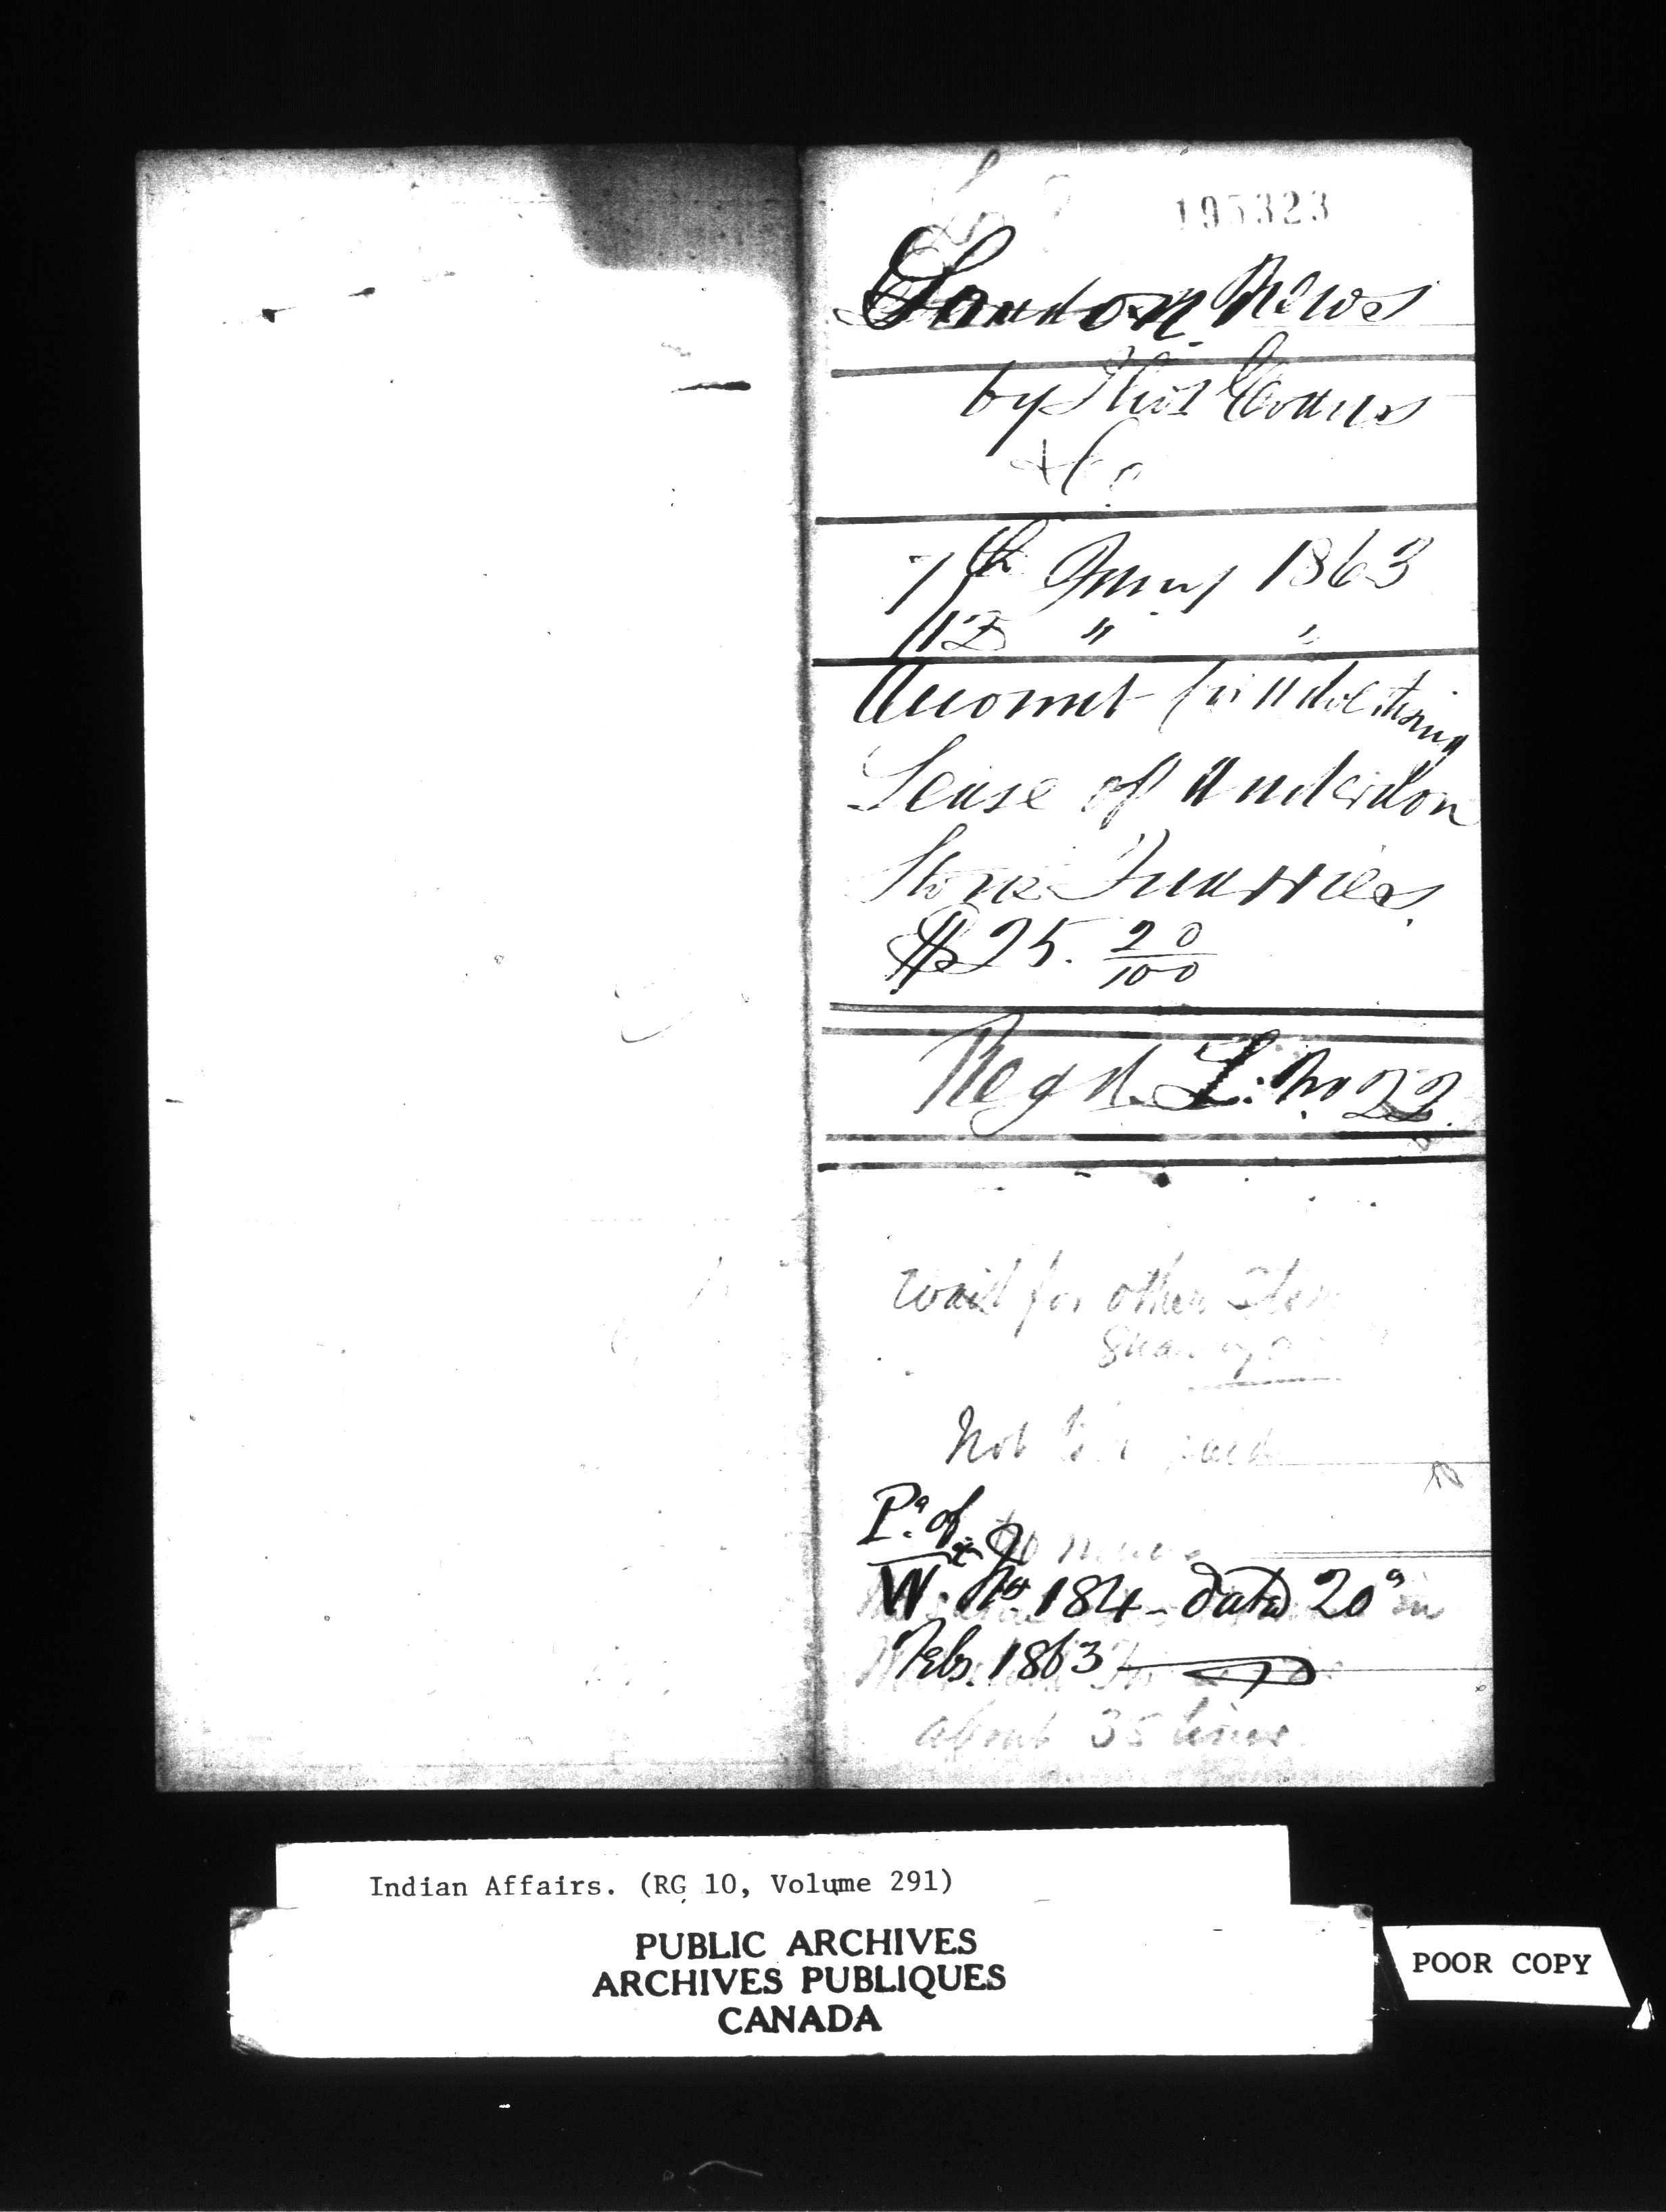 195323
London News
by Thos Evans
& Co
7th Jany 1863
12 " "
Account for advertising
Lease of Anderdon
Stone Quarries.
$25. 20/100
Regd. L: No 22.
wait for other
Not paid
Pd. of
W. No. 184 - dated 20
Feb. 1863
about 35 lines
Indian Affairs. (RG 10, Volume 291)
PUBLIC ARCHIVES
ARCHIVES PUBLIQUES
CANADA
POOR COPY